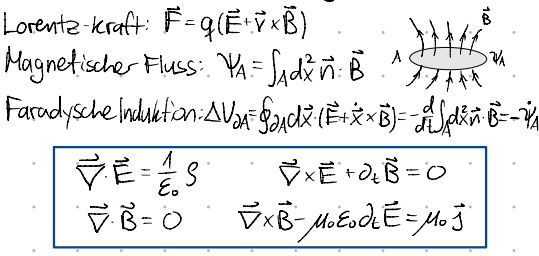 Lorentz-kraft: F⃗ = q(E⃗+v⃗×B⃗)
B⃗
Magnetischer Fluss: Ψ_A = ∫_A dx² n⃗ · B⃗
A Ψ_A
Faradysche Induktion: ΔV_∂A = ∮_∂A dx⃗·(E⃗+ẋ⃗×B⃗) = -d/dt ∫_A dx² n⃗·B⃗ = -Ψ̇_A
∇⃗·E⃗ = 1/ε₀ ρ ∇⃗×E⃗ + ∂ₜB⃗ = 0
∇⃗·B⃗ = 0 ∇⃗×B⃗ - μ₀ε₀∂ₜE⃗ = μ₀ j⃗